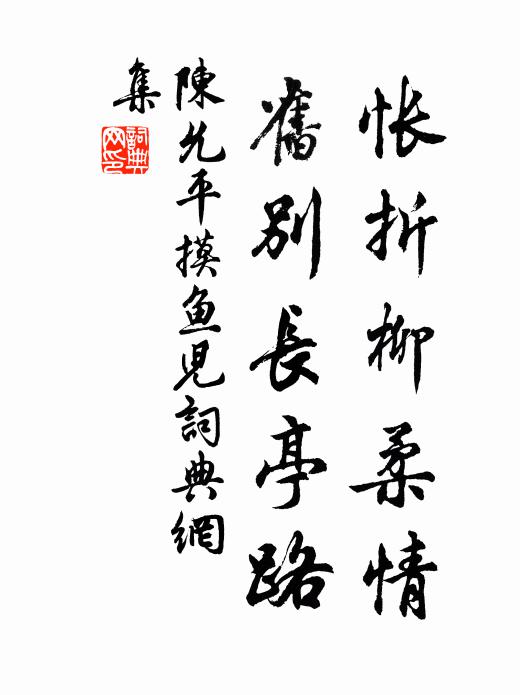 悵折柳柔情
舊別長亭路
陳允平摸魚兒詞典網
集
詞典网印